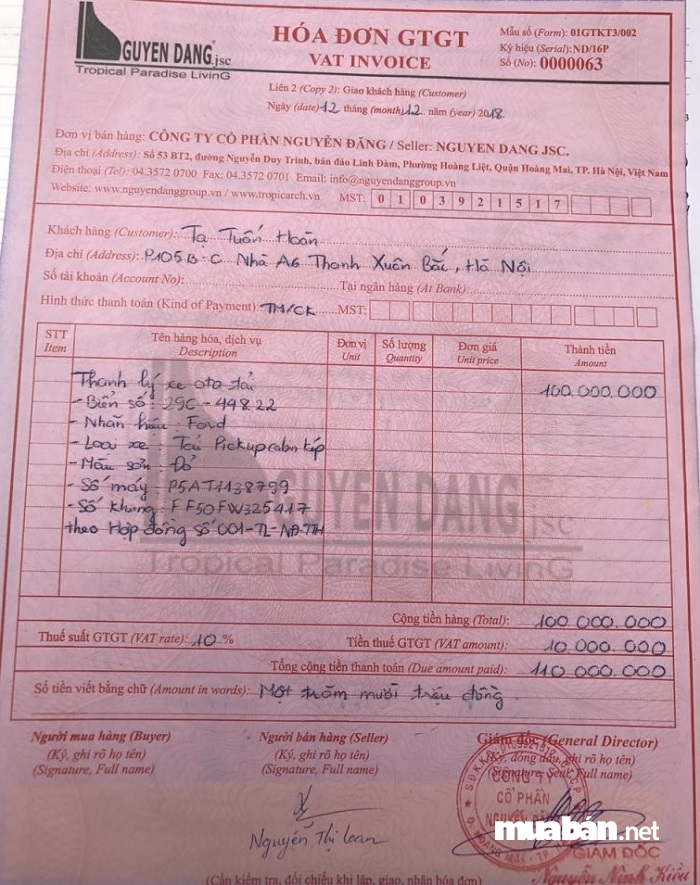 NGUYEN DANG.jsc
Tropical Paradise LivinG
HÓA ĐƠN GTGT
VAT INVOICE
Mẫu số (Form): 01GTKT3/002
Ký hiệu (Serial): ND/16P
Số (No): 0000063
Liên 2 (Copy 2): Giao khách hàng (Customer)
Ngày (date) 12 tháng (month) 12 năm (year) 2018
Đơn vị bán hàng: CÔNG TY CỔ PHẦN NGUYỄN ĐĂNG / Seller: NGUYEN DANG JSC.
Địa chỉ (Address): Số 53 BT2, đường Nguyễn Duy Trinh, bán đảo Linh Đàm, Phường Hoàng Liệt, Quận Hoàng Mai, TP. Hà Nội, Việt Nam
Điện thoại (Tel): 04.3572 0700 Fax: 04.3572 0701 Email: info@nguyendanggroup.vn
Website: www.nguyendanggroup.vn / www.tropicarch.vn MST: 0103921517
Khách hàng (Customer): Tạ Tuấn Hoàn
Địa chỉ (Address): P105B-C Nhà A6 Thanh Xuân Bắc, Hà Nội
Số tài khoản (Account No): Tại ngân hàng (At Bank):
Hình thức thanh toán (Kind of Payment) TM/CK MST:
STT Tên hàng hóa, dịch vụ Đơn vị Số lượng Đơn giá Thành tiền
Item Description Unit Quantity Unit price Amount
Thanh lý xe oto tải 100.000.000
- Biển số: 29C-498.22
- Nhãn hiệu: Ford
- Loại xe: Tải Pickup cabin kép
- Màu sơn: Đỏ
- Số máy P5AT1138799
- Số khung: FF50FW325417
theo Hợp đồng số 001-TL-NĐ-TTH
NGUYEN DANG.jsc
Tropical Paradise LivinG
Cộng tiền hàng (Total): 100.000.000
Thuế suất GTGT (VAT rate): 10 % Tiền thuế GTGT (VAT amount): 10.000.000
Tổng cộng tiền thanh toán (Due amount paid): 110.000.000
Số tiền viết bằng chữ (Amount in words): Một trăm mười triệu đồng.
Người mua hàng (Buyer) Người bán hàng (Seller) Giám đốc (General Director)
(Ký, ghi rõ họ tên) (Ký, ghi rõ họ tên) (Ký, đóng dấu, ghi rõ họ tên)
(Signature, Full name) (Signature, Full name) (Signature, Seal, Full name)
CÔNG TY
CỔ PHẦN
Nguyễn Thị Loan
muaban.net
GIÁM ĐỐC
Nguyễn Ninh Kiều
(Cần kiểm tra, đối chiếu khi lập, giao, nhận hóa đơn)